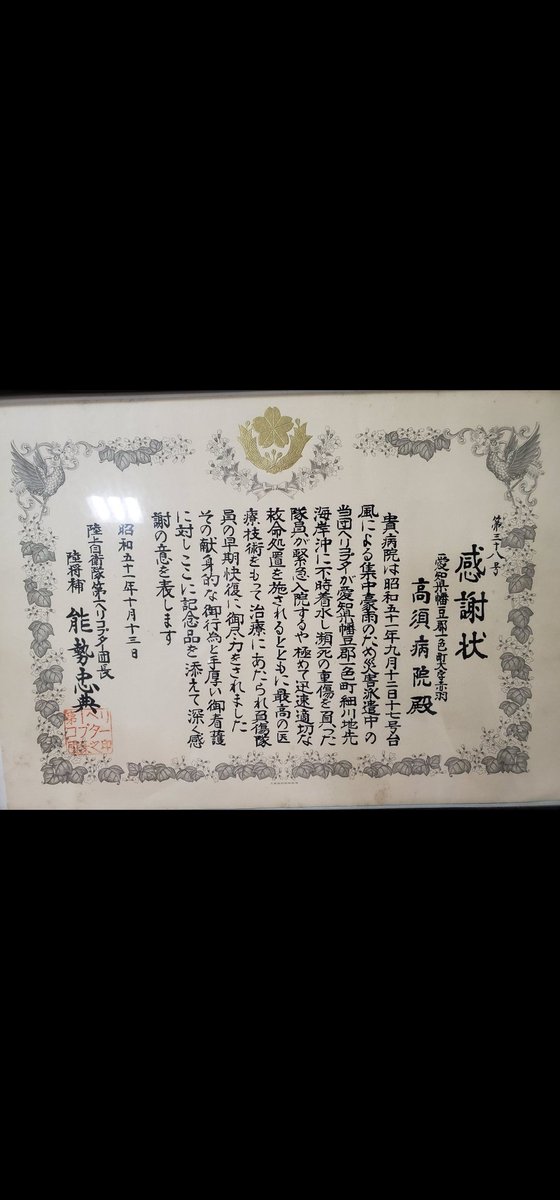 第三十八号
感謝状
愛知県幡豆郡一色町大字赤羽
高須病院殿
貴病院は昭和五十一年九月十二日十七号台
風による集中豪雨のため災害派遣中の
当団ヘリコプターが愛知県幡豆郡一色町細川地先
海岸沖に不時着水し瀕死の重傷を負った
隊員が緊急入院するや極めて迅速適切な
救命処置を施されるとともに最高の医
療技術をもって治療にあたられ負傷隊
員の早期快復に御尽力をされました
その献身的な御行為と手厚い御看護
に対しここに記念品を添えて深く感
謝の意を表します
昭和五十一年十月十三日
陸上自衛隊第一ヘリコプター団長
陸将補 能勢忠典
第一ヘリ
コプター
団長之印